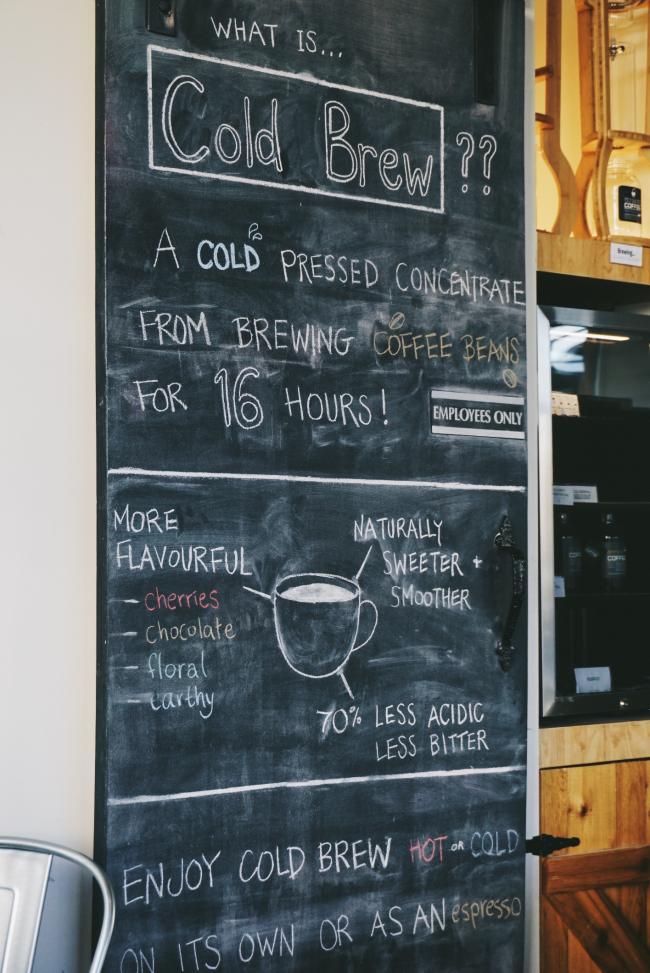 WHAT IS...
Cold Brew ??
A COLD PRESSED CONCENTRATE
FROM BREWING COFFEE BEANS
FOR 16 HOURS!
EMPLOYEES ONLY
MORE
FLAVOURFUL
- cherries
- chocolate
- floral
- earthy
NATURALLY
SWEETER +
SMOOTHER
70% LESS ACIDIC
LESS BITTER
ENJOY COLD BREW HOT OR COLD
ON ITS OWN OR AS AN espresso
COFFEE
Brewing...